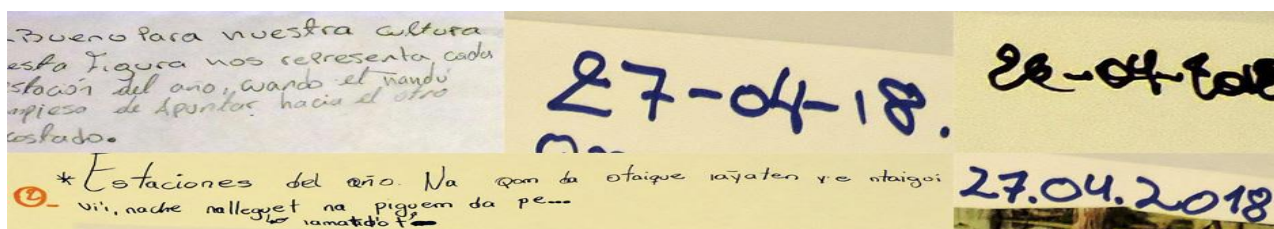 Bueno Para nuestra cultura
esta Figura nos representa cada
stación del año, cuando el ñandú
mpieso de Apuntar hacia el otro
costado.
27-04-18.
26-04-2018
* Estaciones del año. Na qom da otaique
2_ vi'i, nache nalleguet na piguem da pe...
27.04.2018